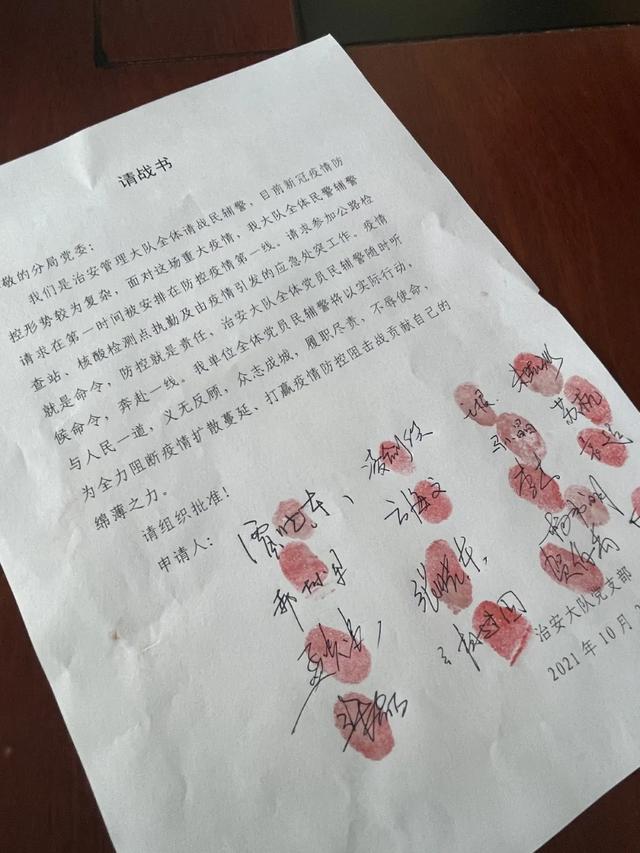 请战书
敬的分局党委：
我们是治安管理大队全体请战民辅警，目前新冠疫情防
控形势较为复杂，面对这场重大疫情，我大队全体民警辅警
请求在第一时间被安排在防控疫情第一线。请求参加公路检
查站、核酸检测点执勤及由疫情引发的应急处突工作。疫情
就是命令，防控就是责任，治安大队全体党员民辅警随时听
候命令，奔赴一线。我单位全体党员民辅警将以实际行动，
与人民一道，义无反顾，众志成城，履职尽责，不辱使命，
为全力阻断疫情扩散蔓延、打赢疫情防控阻击战贡献自己的
绵薄之力。
请组织批准！
申请人：
治安大队党支部
2021年10月